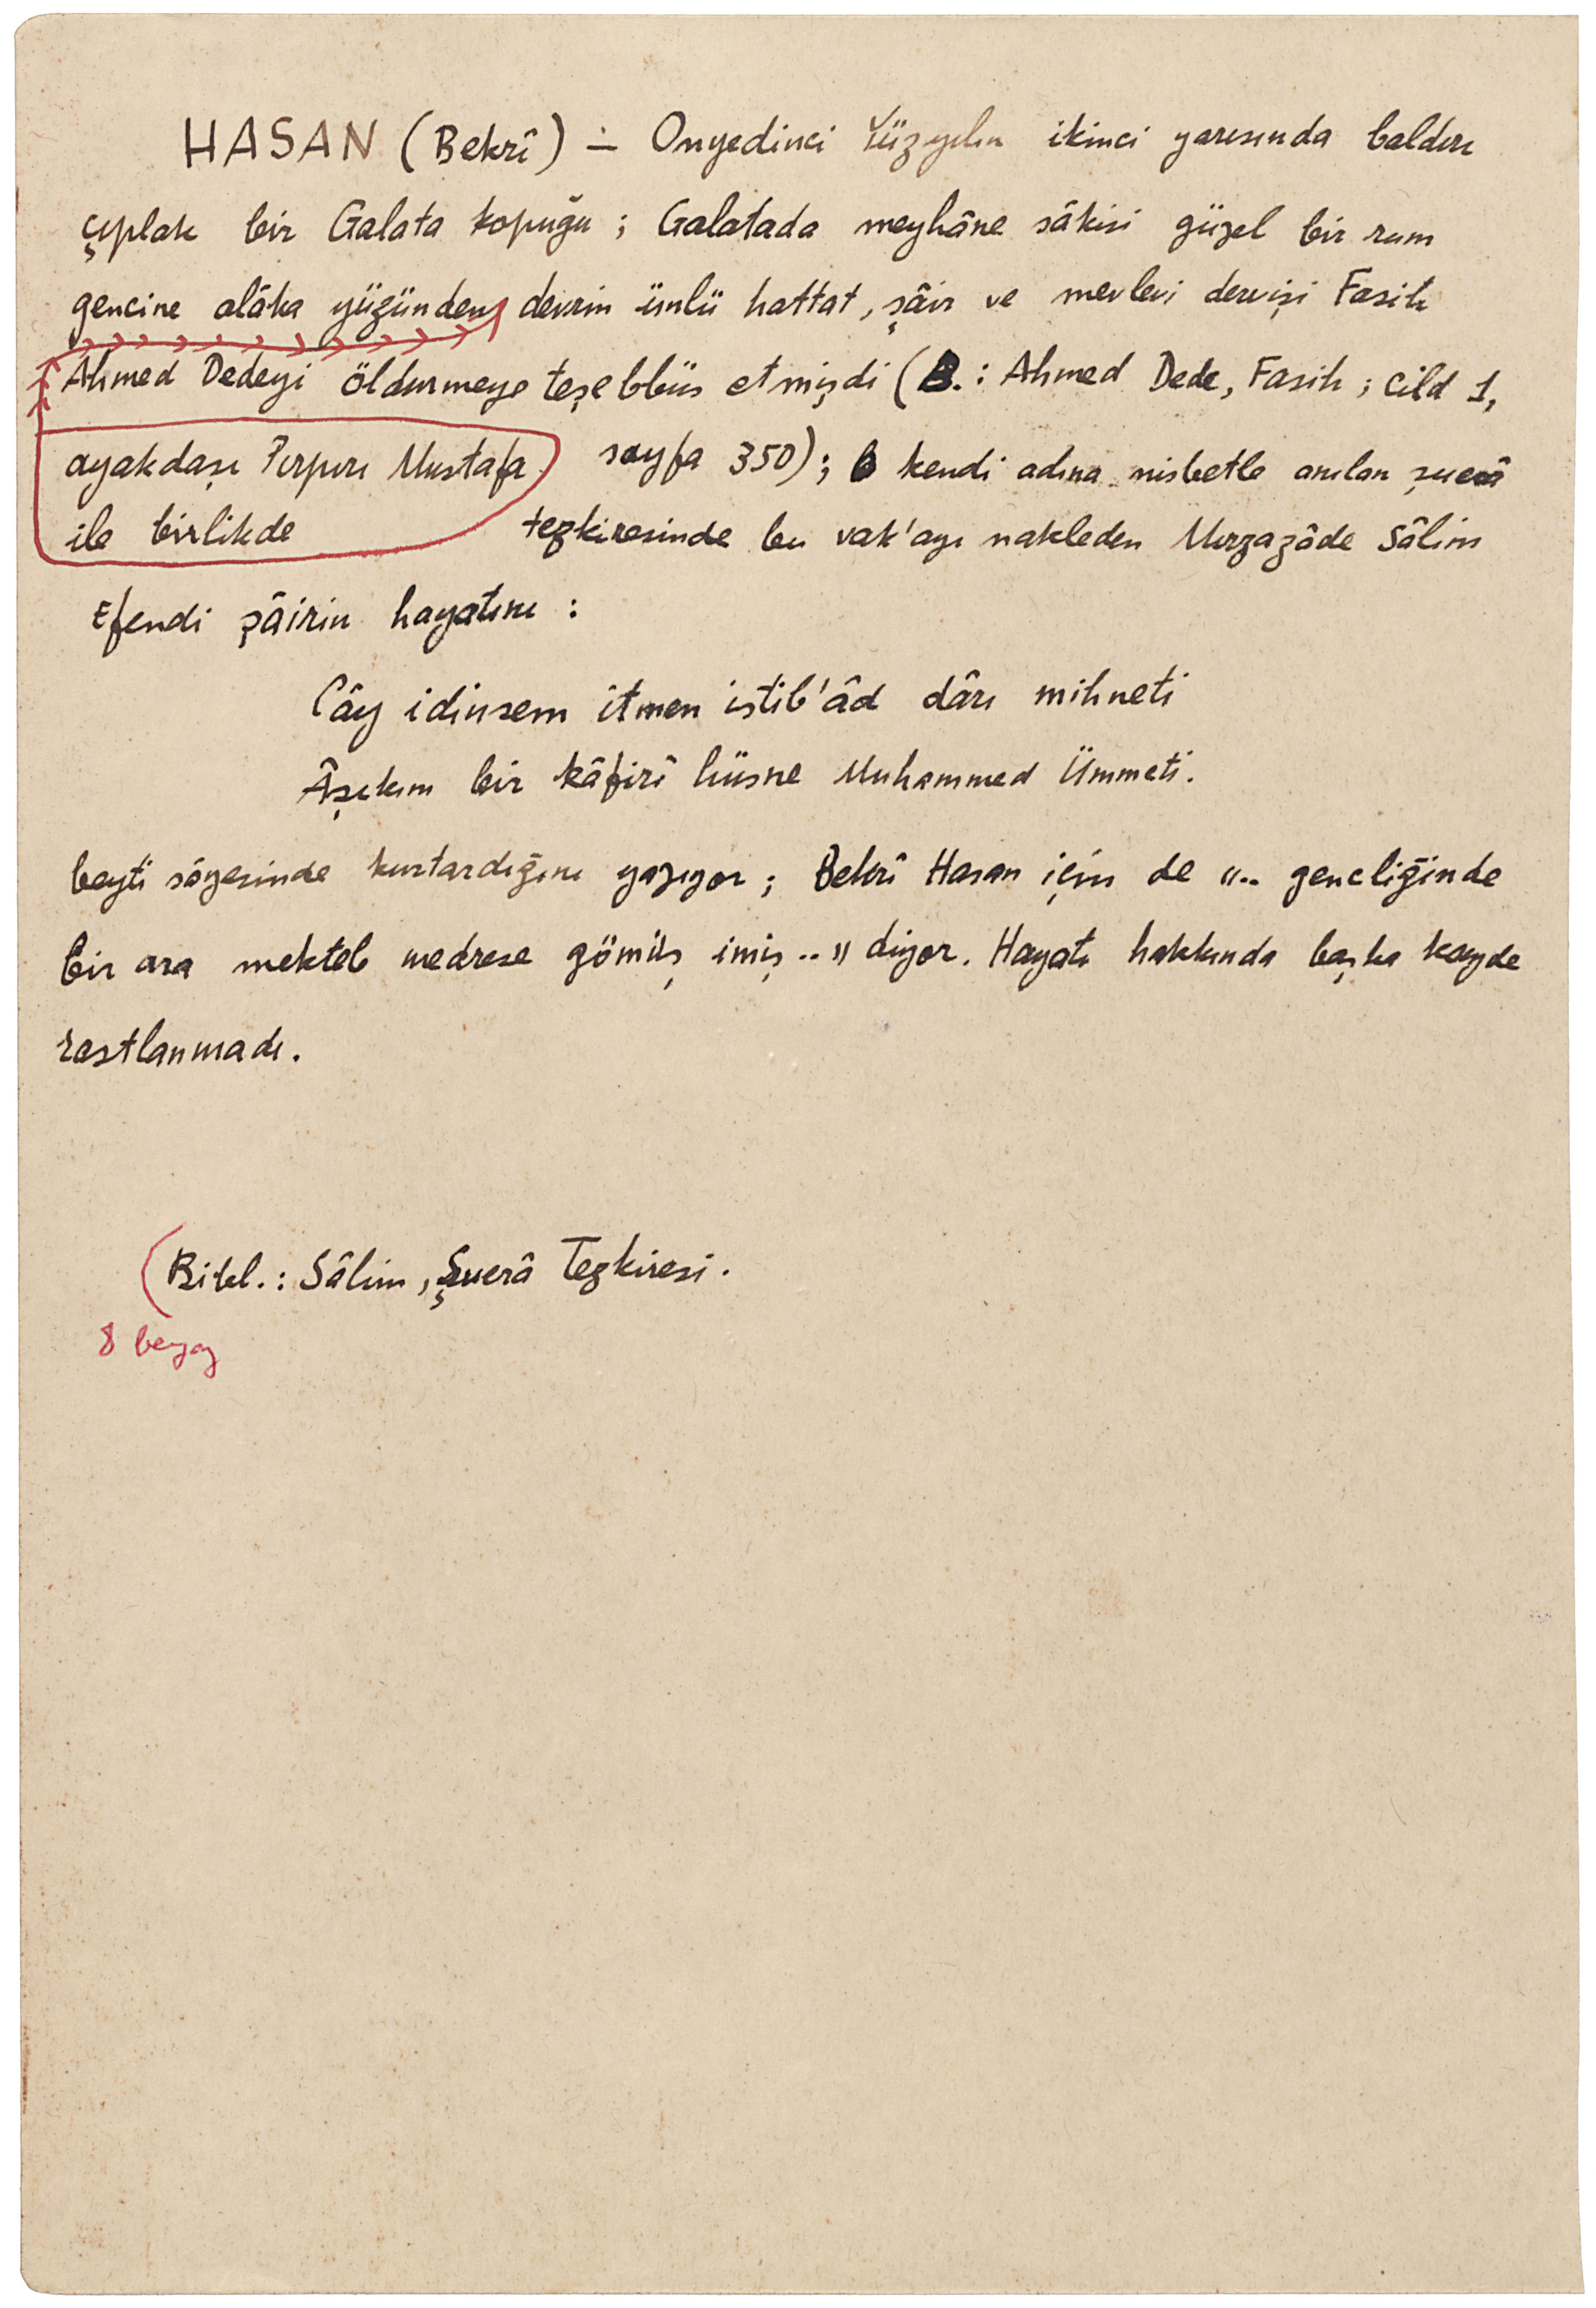 HASAN (Bekrî) — Onyedinci Yüzyılın ikinci yarısında baldırı
çıplak bir Galata kopuğu ; Galatada meyhâne sâkisi güzel bir rum
gencine alâka yüzünden devrin ünlü hattat, şâir ve mevlevi dervişi Fasih
Ahmed Dedeyi öldürmeye teşebbüs etmişdi (B.: Ahmed Dede, Fasih ; cild 1,
ayakdaşı Pırpırı Mustafa
ile birlikde
sayfa 350) ; kendi adına nisbetle anılan şuerâ
tezkiresinde bu vak'ayı nakleden Mirzazâde Sâlim
Efendi şâirin hayatını :
Cây idinsem itmen istib'âd dârı mihneti
Âşıkım bir kâfiri hüsne Muhammed Ümmeti.
beyti sâyesinde kurtardığını yazıyor ; Bekrî Hasan için de ".. gençliğinde
bir ara mekteb medrese gömüş imiş .." diyor. Hayatı hakkında başka kayde
rastlanmadı.
(Bibl.: Sâlim, Şuerâ Tezkiresi.
8 beyaz